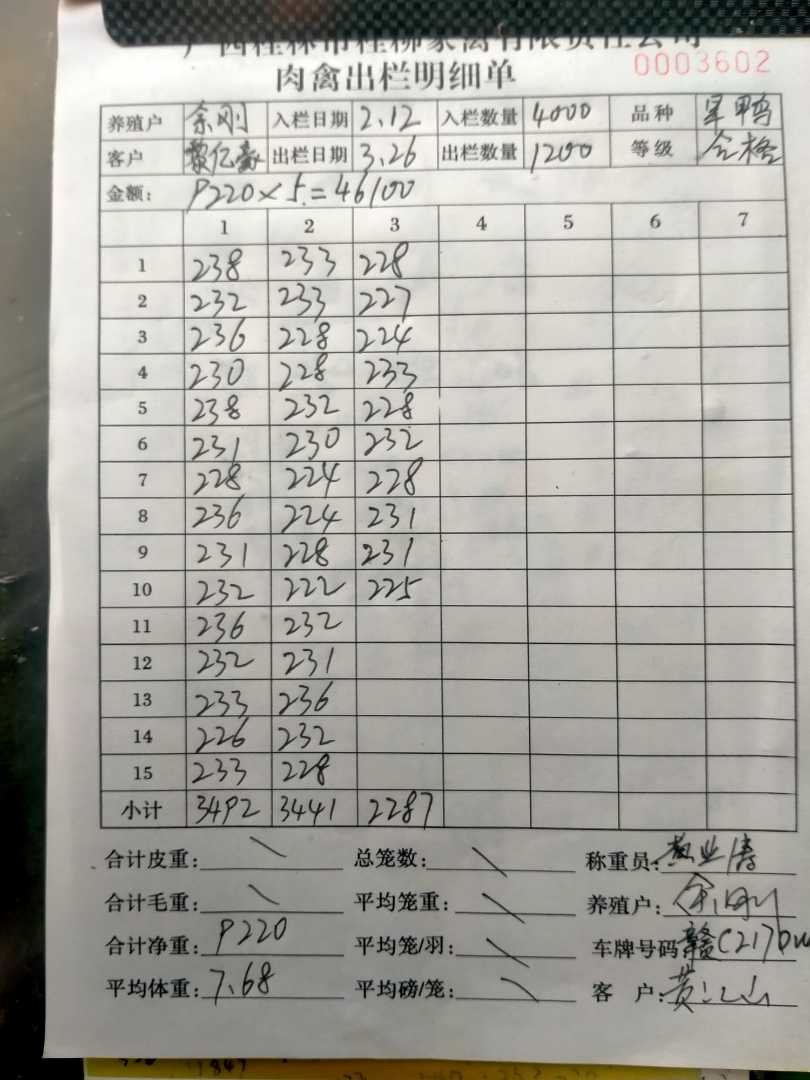 广西桂林市桂柳家禽有限责任公司
肉禽出栏明细单 0003602
养殖户 余刚 入栏日期 2.12 入栏数量 4000 品种 旱鸭
客户 出栏日期 3.26 出栏数量 1200 等级 合格
金额: 9220×5.=46100
1 2 3 4 5 6 7
1 238 233 228
2 232 233 227
3 236 228 224
4 230 228 233
5 238 232 228
6 231 230 232
7 228 224 228
8 236 224 231
9 231 228 231
10 232 222 225
11 236 232
12 232 231
13 233 236
14 226 232
15 233 228
小计 3492 3441 2287
合计皮重: 总笼数: 称重员: 黄业涛
合计毛重: 平均笼重: 养殖户: 余刚
合计净重: 9220 平均笼/羽: 车牌号码 赣C2170W
平均体重: 7.68 平均磅/笼: 客 户: 黄江山